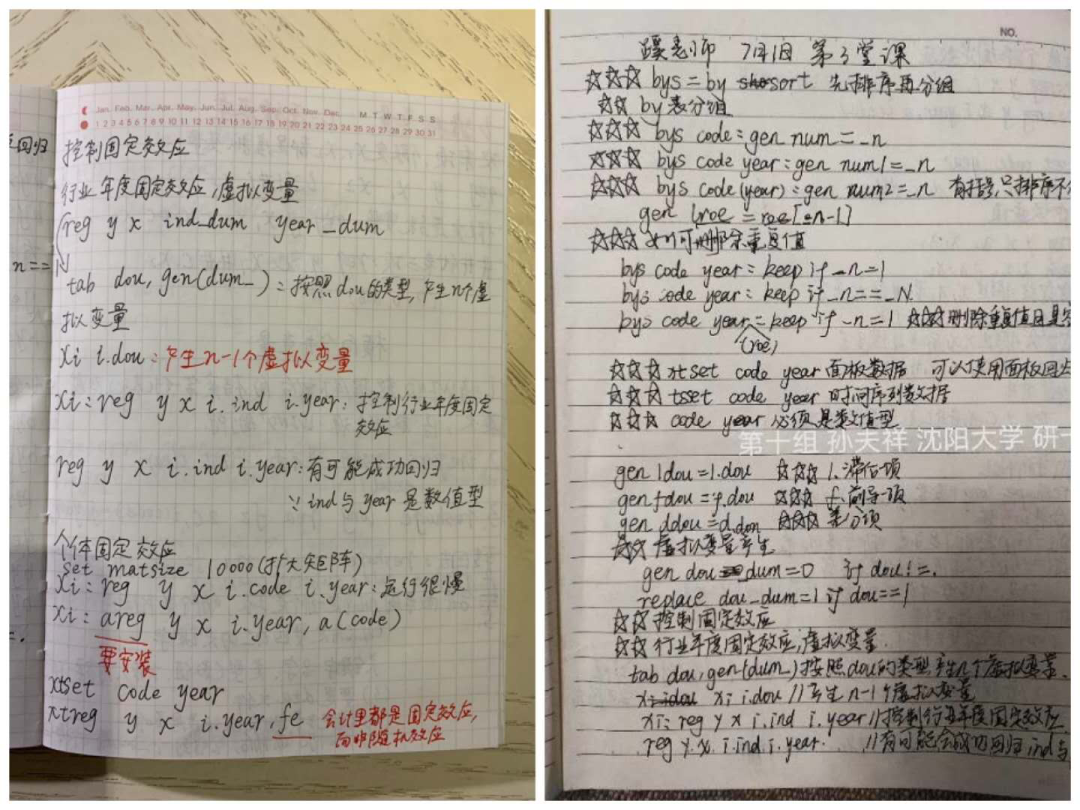 Jan. Feb. Mar. Apr. May. Jun. Jul. Aug. Sep. Oct. Nov. Dec. M T W T F S S
1 2 3 4 5 6 7 8 9 10 11 12 13 14 15 16 17 18 19 20 21 22 23 24 25 26 27 28 29 30 31
回归
n==N
控制固定效应
行业年度固定效应:虚拟变量
reg y x ind_dum year_dum
tab dou, gen(dum_):按照dou的类型,产生n个虚
拟变量
xi i.dou:产生n-1个虚拟变量
xi:reg y x i.ind i.year:控制行业年度固定
效应
reg y x i.ind i.year:有可能成功回归
∵ind与year是数值型
个体固定效应
set matsize 10000(扩大矩阵)
xi:reg y x i.code i.year:运行很慢
xi:areg y x i.year, a(code)
要安装
xtset code year
xtreg y x i.year, fe 会计里都是固定效应,
而非随机效应
NO.
老师 7月1日 第3堂课
☆☆☆ bys = by sort 先排序再分组
☆☆ by 表分组
☆☆☆ bys code:gen num=_n
☆☆☆ bys code year:gen num1=_n
☆☆☆ bys code(year):gen num2=_n 有括号,只排序不
gen lroe=roe[_n-1]
☆☆☆ 如何删除重复值
bys code year:keep if _n=1
bys code year:keep if _n==_N
bys code year:keep if _n=1 ☆☆☆删除重复值且是
(roe)
☆☆☆ xtset code year 面板数据 可以使用面板回归
☆☆☆ tsset code year 时间序列数据
☆☆☆ code year 必须是数值型
第十组 孙天祥 沈阳大学 研一
gen ldou=l.dou ☆☆☆ l.滞后项
gen fdou=f.dou ☆☆☆ f.前导项
gen ddou=d.dou ☆☆☆ 差分项
☆☆ 虚拟变量产生
gen dou_dum=0 if dou!=.
replace dou_dum=1 if dou==1
☆☆ 控制固定效应
☆☆ 行业年度固定效应,虚拟变量.
tab dou,gen(dum_)按照dou的类型产生n个虚拟变量.
xi i.dou //产生n-1个虚拟变量
xi:reg y x i.ind i.year //控制行业年度固定效应
reg y x i.ind i.year. //有可能会成功回归,ind与